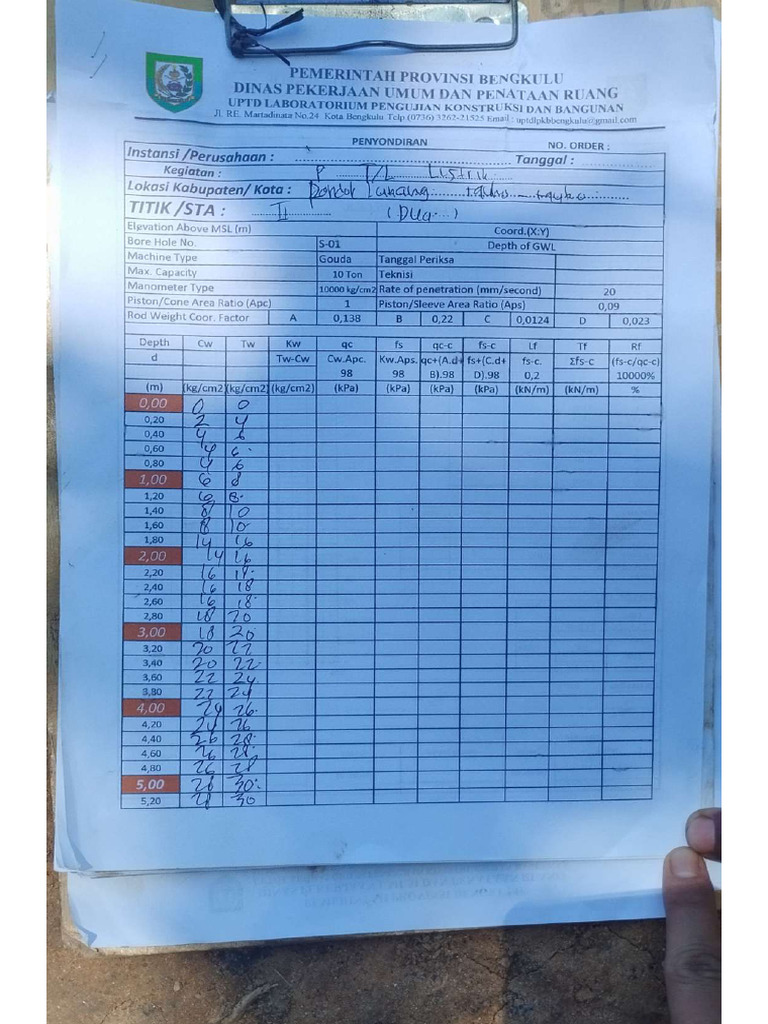 PEMERINTAH PROVINSI BENGKULU
DINAS PEKERJAAN UMUM DAN PENATAAN RUANG
UPTD LABORATORIUM PENGUJIAN KONSTRUKSI DAN BANGUNAN
Jl. RE. Martadinata No.24 Kota Bengkulu Telp (0736) 3262-21525 Email : uptdlpkbbengkulu@gmail.com
PENYONDIRAN NO. ORDER :
Instansi /Perusahaan : Tanggal :
Kegiatan : P T/L Listrik
Lokasi Kabupaten/ Kota : Pondok
TITIK /STA : II (Dua)
Elgvation Above MSL (m) Coord.(X:Y)
Bore Hole No. S-01 Depth of GWL
Machine Type Gouda Tanggal Periksa
Max. Capacity 10 Ton Teknisi
Manometer Type 10000 kg/cm2 Rate of penetration (mm/second) 20
Piston/Cone Area Ratio (Apc) 1 Piston/Sleeve Area Ratio (Aps) 0,09
Rod Weight Coor. Factor A 0,138 B 0,22 C 0,0124 D 0,023
Depth Cw Tw Kw qc fs qc-c fs-c Lf Tf Rf
d Tw-Cw Cw.Apc. Kw.Aps. qc+(A.d+ fs+(C.d+ fs-c. Σfs-c (fs-c/qc-c)
98 98 B).98 D).98 0,2 10000%
(m) (kg/cm2) (kg/cm2) (kg/cm2) (kPa) (kPa) (kPa) (kPa) (kN/m) (kN/m) %
0,00 0 0
0,20 2 4
0,40 4 6
0,60 4 6
0,80 4 6
1,00 6 8
1,20 6 8
1,40 8 10
1,60 8 10
1,80 14 16
2,00 14 16
2,20 16 18
2,40 16 18
2,60 16 18
2,80 18 20
3,00 18 20
3,20 20 22
3,40 20 22
3,60 22 24
3,80 22 24
4,00 24 26
4,20 24 26
4,40 26 28
4,60 26 28
4,80 26 28
5,00 28 30
5,20 28 30